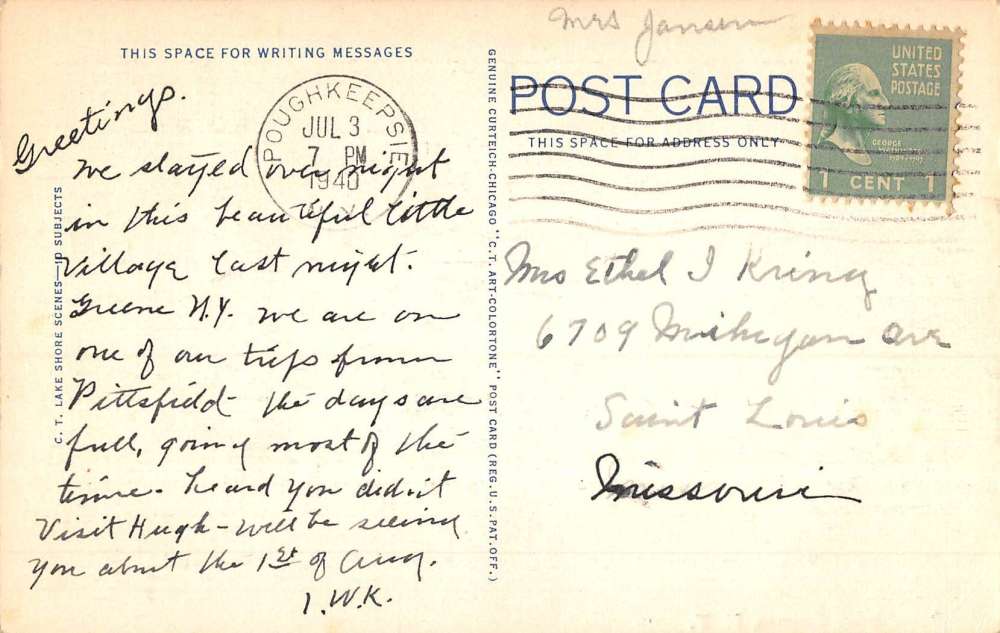 Mrs Jansen
THIS SPACE FOR WRITING MESSAGES
Greetings.
We stayed over night
in this beautiful little
Village last night.
Greene N.Y. we are on
one of our trips from
Pittsfield - the days are
full, going most of the
time. heard you didn't
Visit Hugh - will be seeing
you about the 1st of Aug.
I.W.K.
POUGHKEEPSIE
JUL 3
7 PM
1940
N.Y.
C. T. LAKE SHORE SCENES—10 SUBJECTS
GENUINE CURTEICH-CHICAGO "C.T. ART-COLORTONE" POST CARD (REG. U.S. PAT. OFF.)
POST CARD
THIS SPACE FOR ADDRESS ONLY
UNITED
STATES
POSTAGE
GEORGE
WASHINGTON
1 CENT 1
Mrs Ethel I Kring
6709 Mihegan Ave
Saint Louis
Missouri